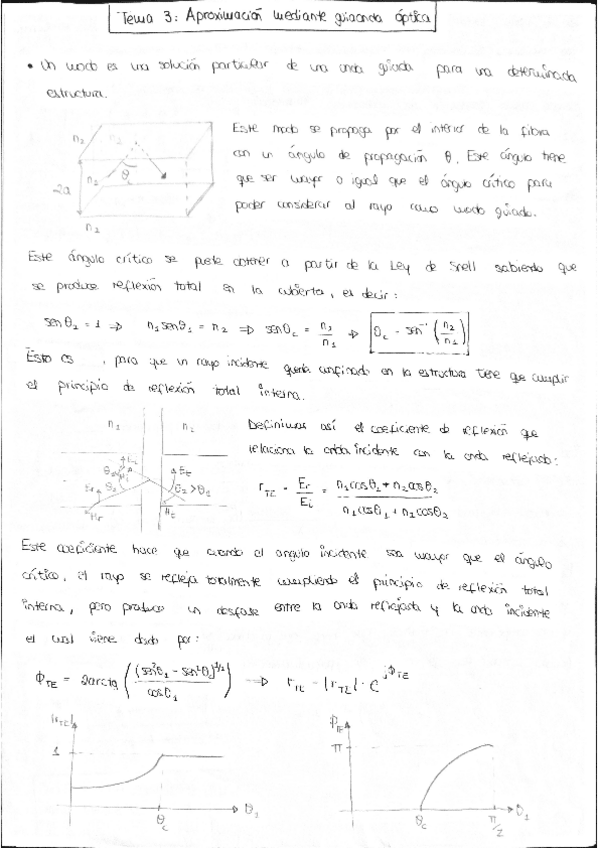 Tema 3: Aproximación mediante guiaonda óptica
• Un modo es una solución particular de una onda guiada para una determinada
estructura.
n₂ n₂
Este modo se propaga por el interior de la fibra
con un ángulo de propagación θ. Este ángulo tiene
2a
que ser mayor o igual que el ángulo crítico para
poder considerar al rayo como modo guiado.
Este ángulo crítico se puede obtener a partir de la Ley de Snell sabiendo que
se produce reflexión total en la cubierta, es decir:
senθ₂ = 1 → n₁senθ₁ = n₂ ⇒ senθc = n₂/n₁ → θc = sen⁻¹ (n₂/n₁)
Esto es, para que un rayo incidente quede confinado en la estructura tiene que cumplir
el principio de reflexión total interna.
Definimos así el coeficiente de reflexión que
relaciona la onda incidente con la onda reflejada:
θ₂ > θ₁
r_TE = Er/Ei = n₁cosθ₁ + n₂cosθ₂ / n₁cosθ₁ + n₂cosθ₂
Este coeficiente hace que cuando el angulo incidente sea mayor que el ángulo
crítico, el rayo se refleja totalmente cumpliendo el principio de reflexión total
interna, pero produce un desfase entre la onda reflejada y la onda incidente
el cual viene dado por:
Φ_TE = 2arctg ((sen²θ₁ - sen²θc)^1/2 / cosθ₁) → r_TE = |r_TE| · e^jΦ_TE
|r_TE|
1
θc θ₁
Φ_TE
π
θc π/2 θ₁